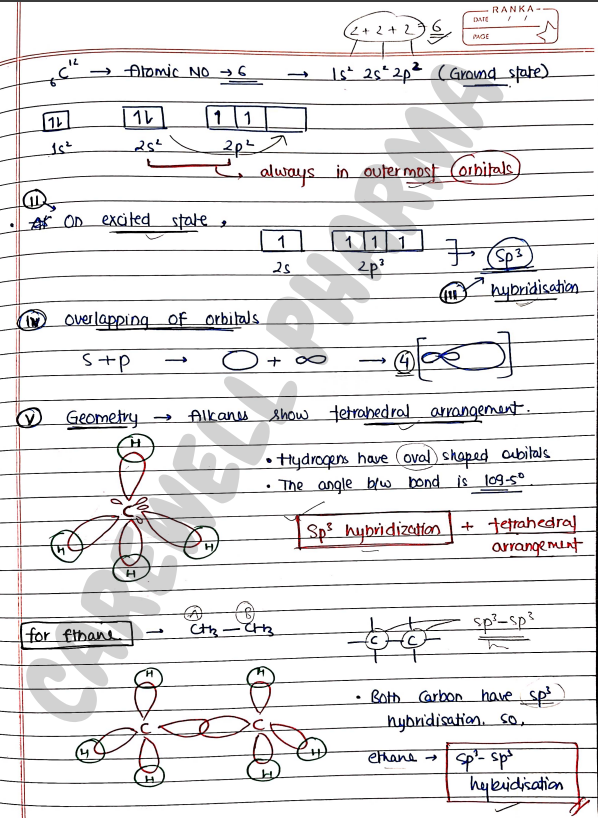 RANKA
DATE / /
PAGE
2+2+2=6
₆C¹² → Atomic NO → 6 → 1s² 2s² 2p² (Ground state)
1↓ 1↓ 1 1
1s² 2s² 2p²
→ always in outermost orbitals
ii
• On excited state,
1 1 1 1
2s 2p³
→ Sp³
iii hybridisation
iv overlapping of orbitals
S+p → + → 4
v Geometry → Alkanes show tetrahedral arrangement.
H
C
H H H
• Hydrogens have oval shaped orbitals
• The angle b/w bond is 109.5°
Sp³ hybridization + tetrahedral
arrangement
for Ethane → CH₃ — CH₃
A B
C C
sp³-sp³
H H
C C
H H H H
• Both carbon have sp³
hybridisation. so,
ethane → sp³-sp³
hybridisation
CAREWELL PHARMA